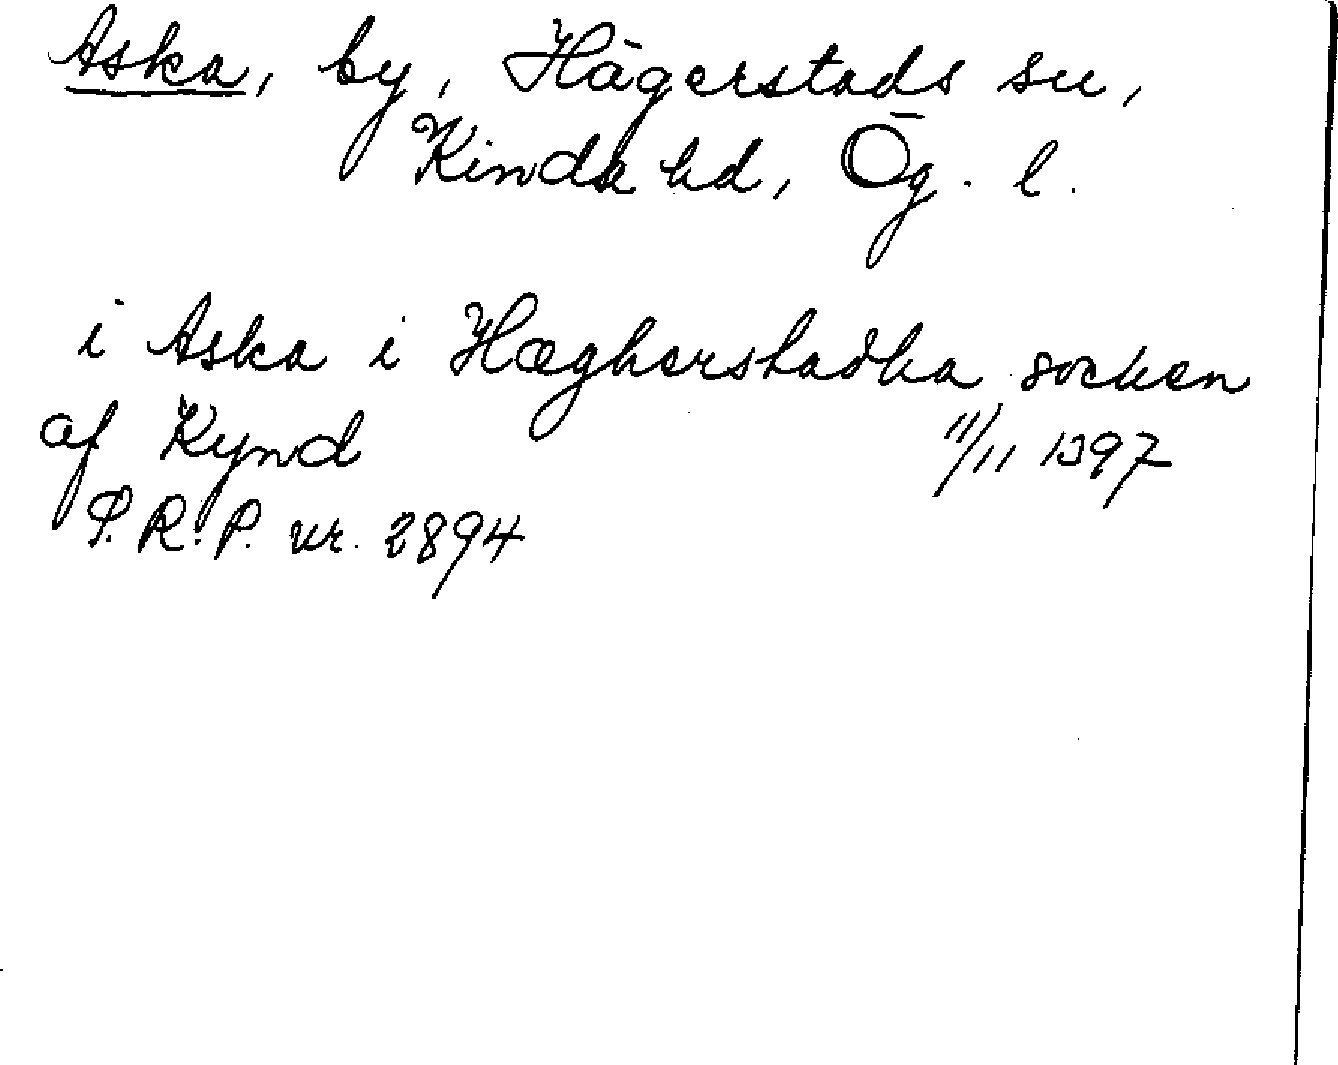 Aska, by, Hägerstads sn,
Kinda hd, Ög. l.
i Aska i Hægherstadha socken
af Kynd 11/11 1397
P. R. P. nr. 2894